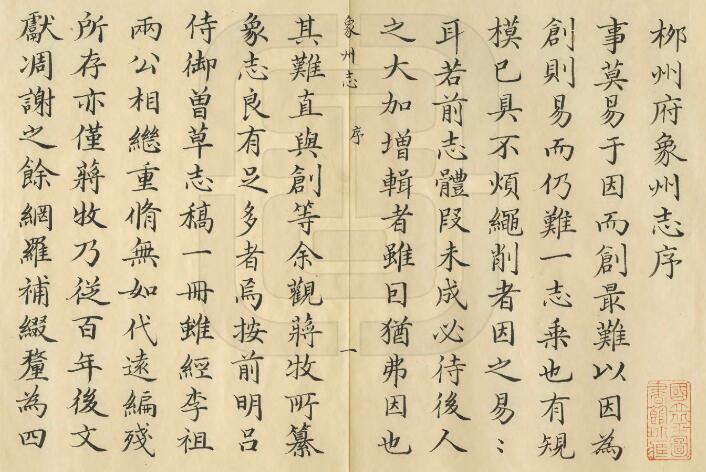 柳州府象州志序
事莫易于因而創最難以因為
創則易而仍難一志乘也有規
模已具不煩繩削者因之易〻
耳若前志體叚未成必待後人
之大加增輯者雖曰猶弗因也
象州志 序 一
其難直與創等余觀蔣牧所纂
象志良有足多者焉按前明呂
侍御曾草志稿一冊雖經李祖
兩公相繼重脩無如代遠編殘
所存亦僅蔣牧乃從百年後文
獻凋謝之餘網羅補綴釐為四